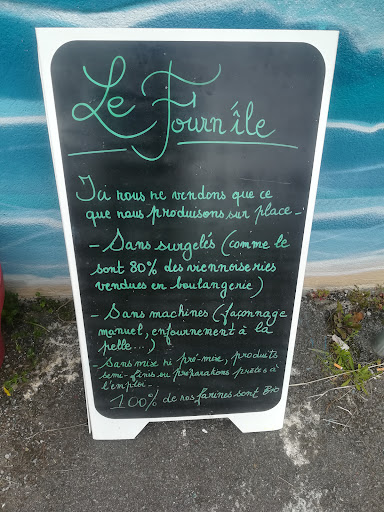 Le Fourn'île
Ici nous ne vendons que ce
que nous produisons sur place -
- Sans surgelés (comme le
sont 80% des viennoiseries
vendues en boulangerie)
- Sans machines (façonnage
manuel, enfournement à la
pelle...)
- Sans mixe ni pré-mixe, produits
semi-finis ou préparations prêtes à
l'emploi -
100% de nos farines sont Bio